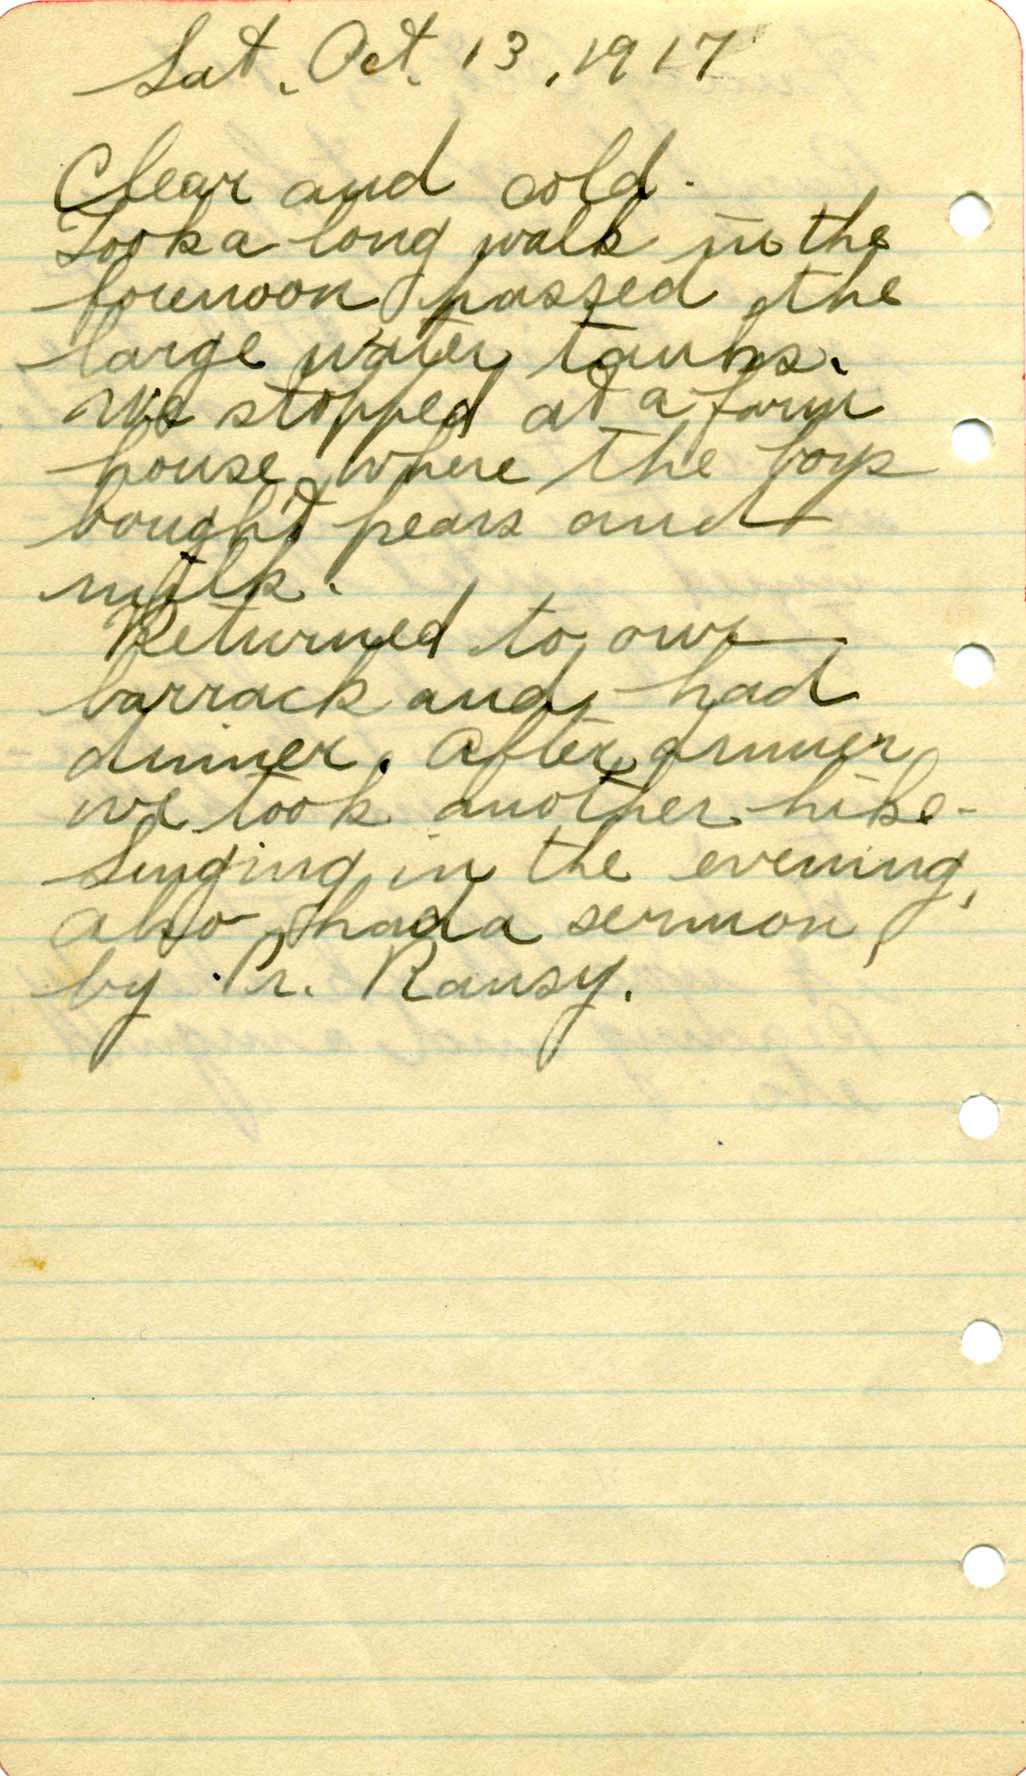 Sat. Oct. 13, 1917
Clear and cold.
Took a long walk in the
forenoon passed the
large water tanks.
We stopped at a farm
house where the boys
bought pears and
milk.
Returned to our
barrack and had
dinner. After dinner
we took another hike-
Singing in the evening,
also had a sermon
by Pr. Ransy.